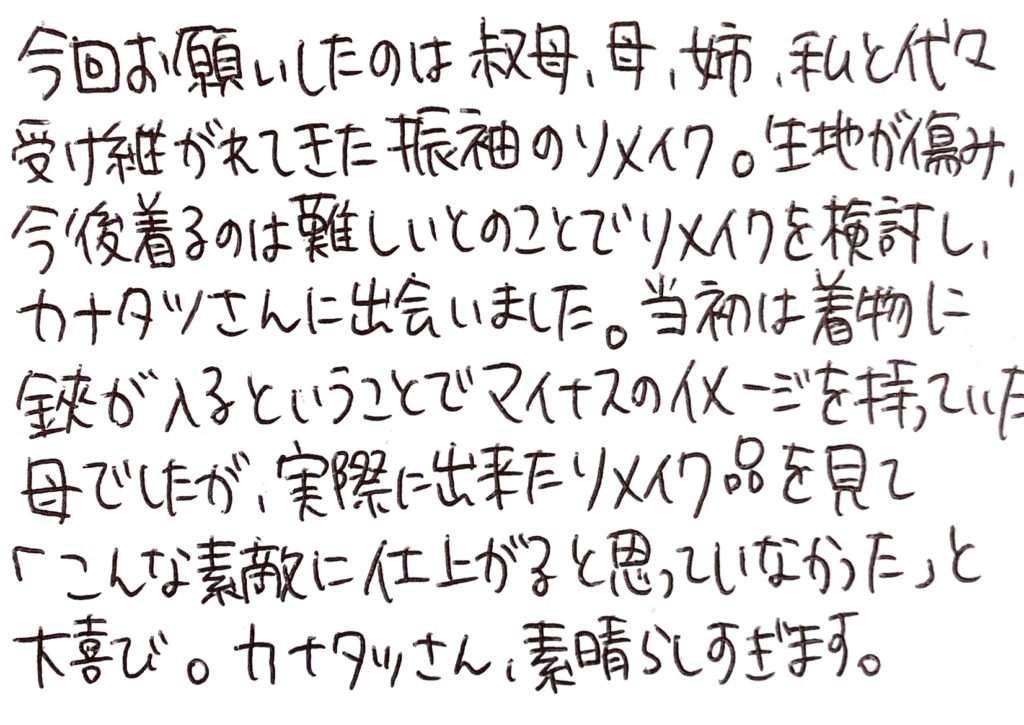 今回お願いしたのは叔母、母、姉、私と代々
受け継がれてきた振袖のリメイク。生地が傷み、
今後着るのは難しいとのことでリメイクを検討し、
カナタツさんに出会いました。当初は着物に
鋏が入るということでマイナスのイメージを持っていた
母でしたが、実際に出来たリメイク品を見て
「こんな素敵に仕上がると思っていなかった」と
大喜び。カナタツさん、素晴らしすぎます。